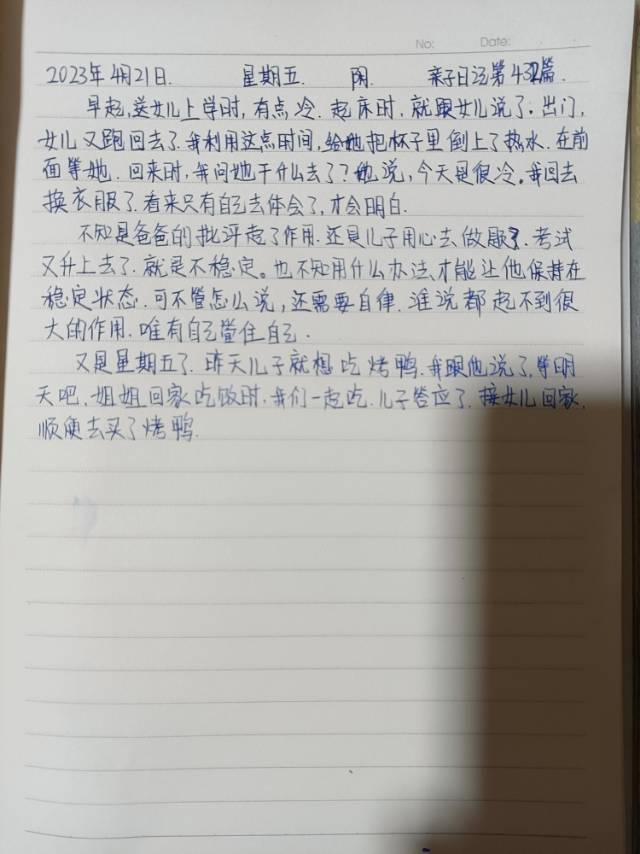 No: Date:
2023年4月21日. 星期五. 阴. 亲子日记第432篇.
早起,送女儿上学时,有点冷.起床时,就跟女儿说了.出门,
女儿又跑回去了.我利用这点时间,给她把杯子里倒上了热水.在前
面等她.回来时,我问她干什么去了?她说,今天是很冷.我回去
换衣服了.看来只有自己去体会了,才会明白.
不知是爸爸的批评起了作用.还是儿子用心去做题了.考试
又升上去了.就是不稳定。也不知用什么办法才能让他保持在
稳定状态.可不管怎么说,还需要自律.谁说都起不到很
大的作用.唯有自己管住自己.
又是星期五了.昨天儿子就想吃烤鸭.我跟他说了,等明
天吧.姐姐回家吃饭时,我们一起吃.儿子答应了.接女儿回家,
顺便去买了烤鸭.